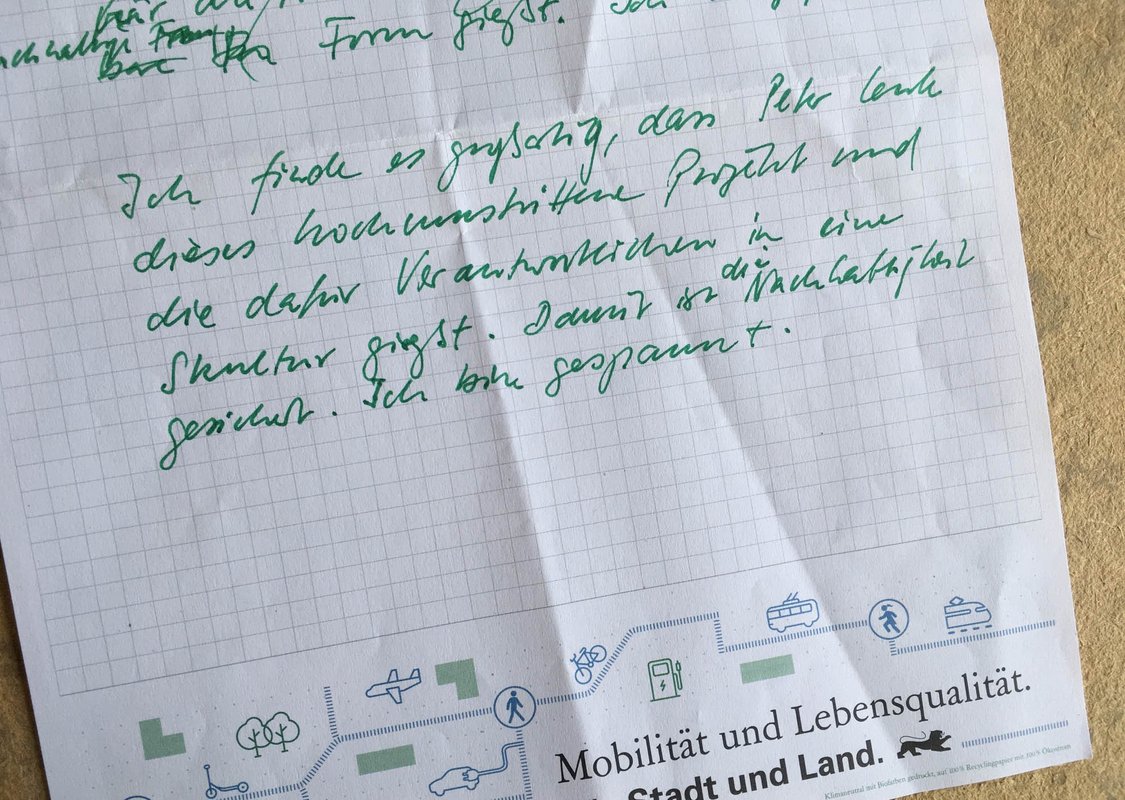 für
Form gießt. Ich
Ich finde es großartig, dass Peter Lenk
dieses hochumstrittene Projekt und
die dafür Verantwortlichen in eine
Skultur gießt. Damit ist die Nachhaltigkeit
gesichert. Ich bin gespannt.
Mobilität und Lebensqualität.
Stadt und Land.
Klimaneutral mit Biofarben gedruckt, auf 100% Recyclingpapier mit 100% Ökostrom